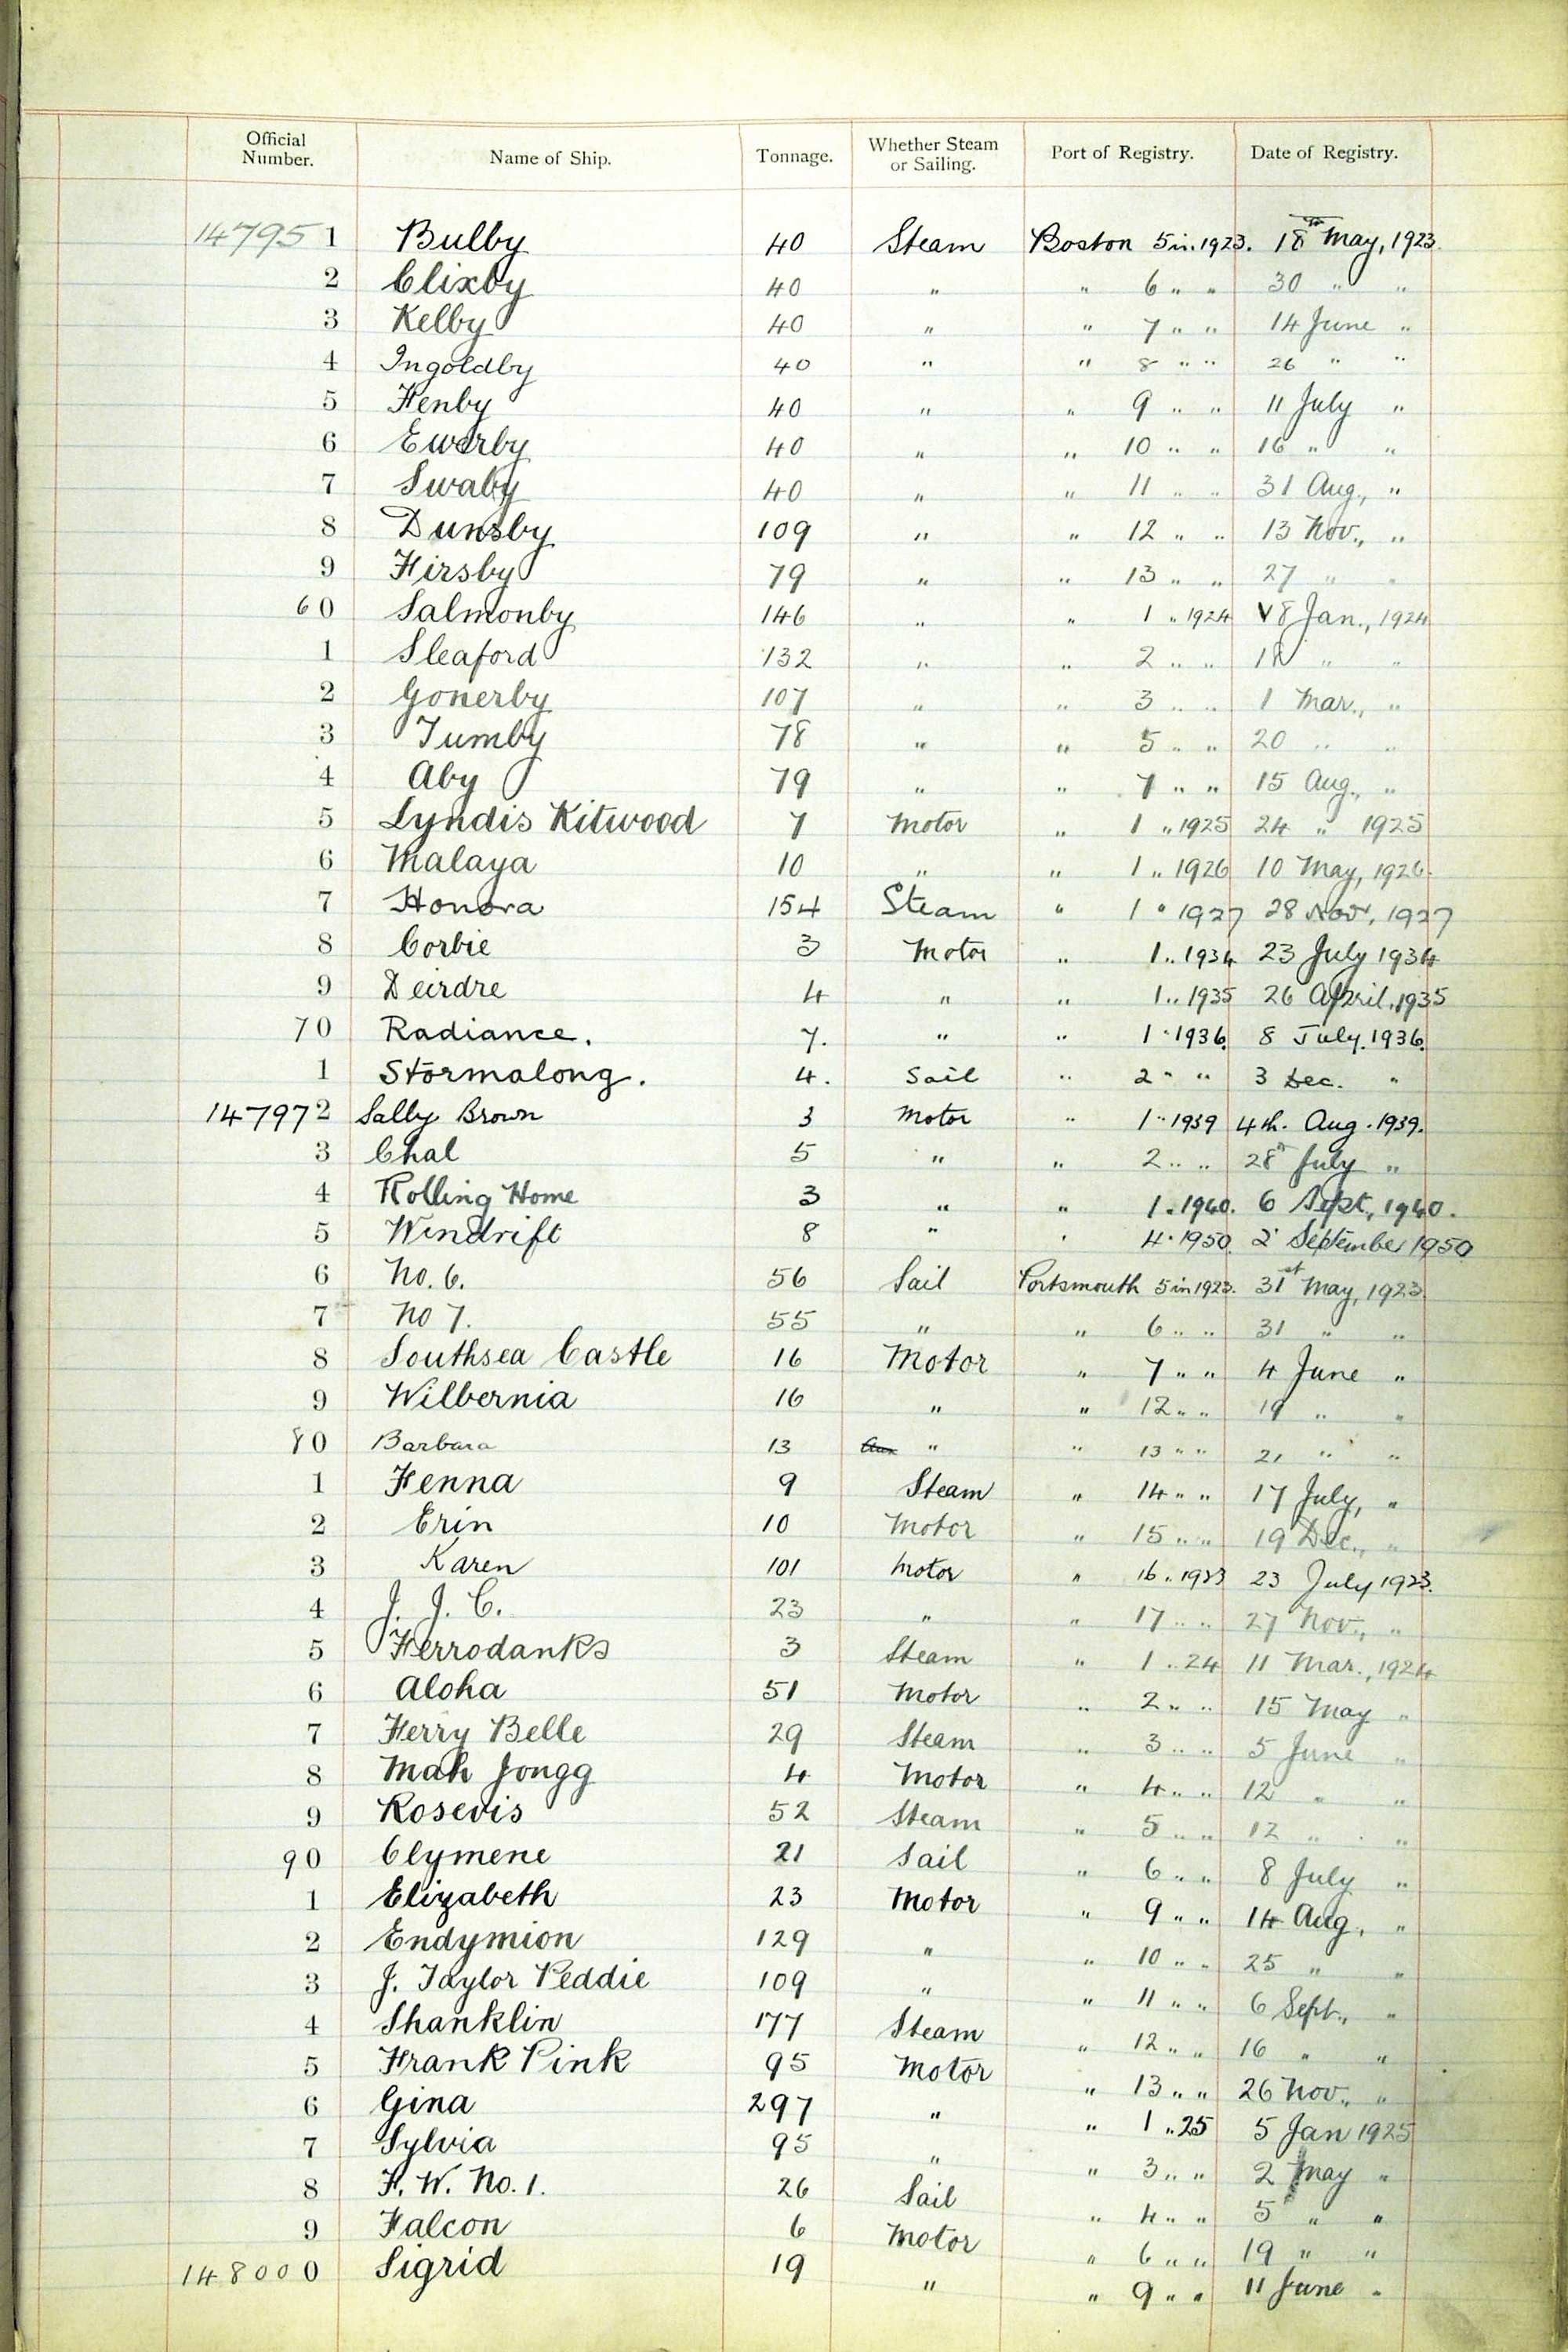 Official Number. Name of Ship. Tonnage. Whether Steam or Sailing. Port of Registry. Date of Registry.
147951 Bulby 40 Steam Boston 5 in 1923. 18th May, 1923.
2 Clixby 40 " " 6 " " 30 " "
3 Kelby 40 " " 7 " " 14 June "
4 Ingoldby 40 " " 8 " " 26 " "
5 Fenby 40 " " 9 " " 11 July "
6 Ewerby 40 " " 10 " " 16 " "
7 Swaby 40 " " 11 " " 31 Aug., "
8 Dunsby 109 " " 12 " " 13 Nov., "
9 Kirsby 79 " " 13 " " 27 " "
60 Salmonby 146 " " 1 " 1924 8 Jan., 1924
1 Sleaford 132 " " 2 " " 18 " "
2 Gonerby 107 " " 3 " " 1 Mar., "
3 Tumby 78 " " 5 " " 20 " "
4 Aby 79 " " 7 " " 15 Aug., "
5 Lyndis Kitwood 7 Motor " 1 " 1925 24 " 1925
6 Malaya 10 " " 1 " 1926 10 May, 1926.
7 Honora 154 Steam " 1 " 1927 28 Nov, 1927
8 Corbie 3 Motor " 1 " 1934 23 July 1934
9 Deirdre 4 " " 1 " 1935 26 April, 1935
70 Radiance. 7. " " 1 " 1936. 8 July. 1936.
1 Stormalong. 4. Sail " 2 " " 3 Dec. "
147972 Sally Brown 3 Motor " 1 " 1939 4th. Aug. 1939.
3 Chal 5 " " 2 " " 28th July "
4 Rolling Home 3 " " 1 " 1940. 6 Sept, 1940.
5 Windrift 8 " " 4 " 1950. 2 September 1950
6 No. 6. 56 Sail Portsmouth 5 in 1923. 31st May, 1923.
7 No 7. 55 " " 6 " " 31 " "
8 Southsea Castle 16 Motor " 7 " " 4 June "
9 Wilbernia 16 " " 12 " " 19 " "
80 Barbara 13 Aux " " 13 " " 21 " "
1 Fenna 9 Steam " 14 " " 17 July, "
2 Erin 10 Motor " 15 " " 19 Dec., "
3 Karen 101 Motor " 16 " 1923 23 July 1923.
4 J. J. C. 23 " " 17 " " 27 Nov., "
5 Ferrodanks 3 Steam " 1 " 24 11 Mar., 1924
6 Aloha 51 Motor " 2 " " 15 May "
7 Ferry Belle 29 Steam " 3 " " 5 June "
8 Mah Jongg 4 Motor " 4 " " 12 " "
9 Rosevis 52 Steam " 5 " " 12 " "
90 Clymene 21 Sail " 6 " " 8 July "
1 Elizabeth 23 Motor " 9 " " 14 Aug, "
2 Endymion 129 " " 10 " " 25 " "
3 J. Taylor Peddie 109 " " 11 " " 6 Sept., "
4 Shanklin 177 Steam " 12 " " 16 " "
5 Frank Pink 95 Motor " 13 " " 26 Nov., "
6 Gina 297 " " 1 " 25 5 Jan 1925
7 Sylvia 95 " " 3 " " 2 May "
8 F. W. No. 1. 26 Sail " 4 " " 5 " "
9 Falcon 6 Motor " 6 " " 19 " "
148000 Sigrid 19 " " 9 " " 11 June "